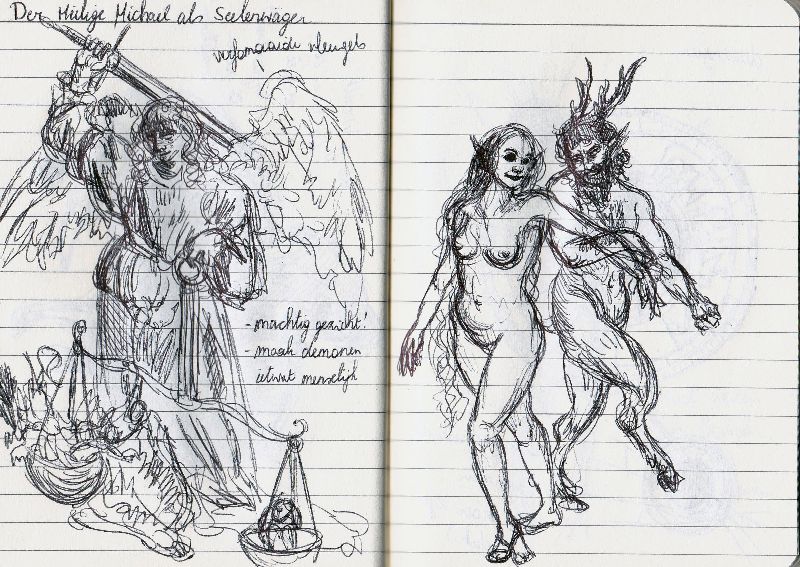 Der Heilige Michael als Seelenwäger
vleugels
- machtig gezicht!
- maak demonen
ietwat menselijk